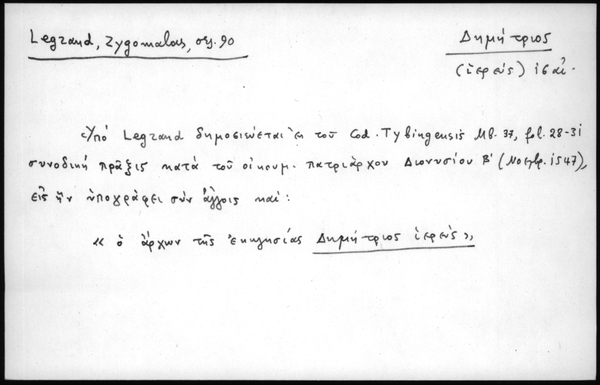 Legrand, Zygomalas, σελ. 90
Δημήτριος
(ἱερεύς) 16 αἰ.
Ὑπὸ Legrand δημοσιεύεται ἐκ τοῦ Cod. Tybingensis Mb. 37, fol. 28-31
συνοδικὴ πρᾶξις κατὰ τοῦ οἰκουμ. πατριάρχου Διονυσίου Β' (Νοεμβρ. 1547),
εἰς ἣν ὑπογράφει σὺν ἄλλοις καί:
« ὁ ἄρχων τῆς ἐκκλησίας Δημήτριος ἱερεύς »